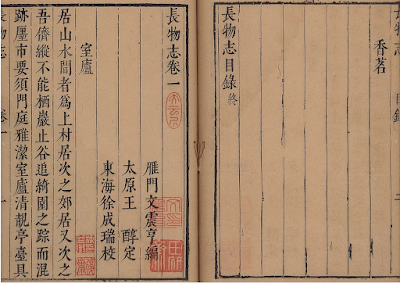 長物志 目錄 二
香茗
長物志目錄 終
長物志卷一
雁門文震亨編
太原王 醇定
東海徐成瑞校
室廬
居山水間者為上村居次之郊居又次之
吾儕縱不能栖巖止谷追綺園之踪而混
跡廛市要須門庭雅潔室廬清靚亭臺具
長物志 卷一 一